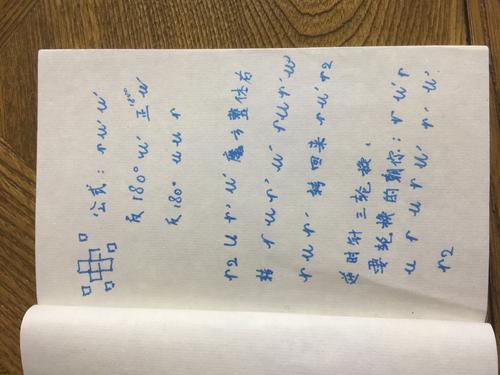 公式: r u' u'
反180° u' 正180° u'
反180° u u r
r2 u r' u' 魔方整体右
转 r u r' u' r u r' u'
r u r' 转回来 r u' r2
逆时针三轮换.
要轮换的朝你: r u' r
u r u r u' r' u'
r2